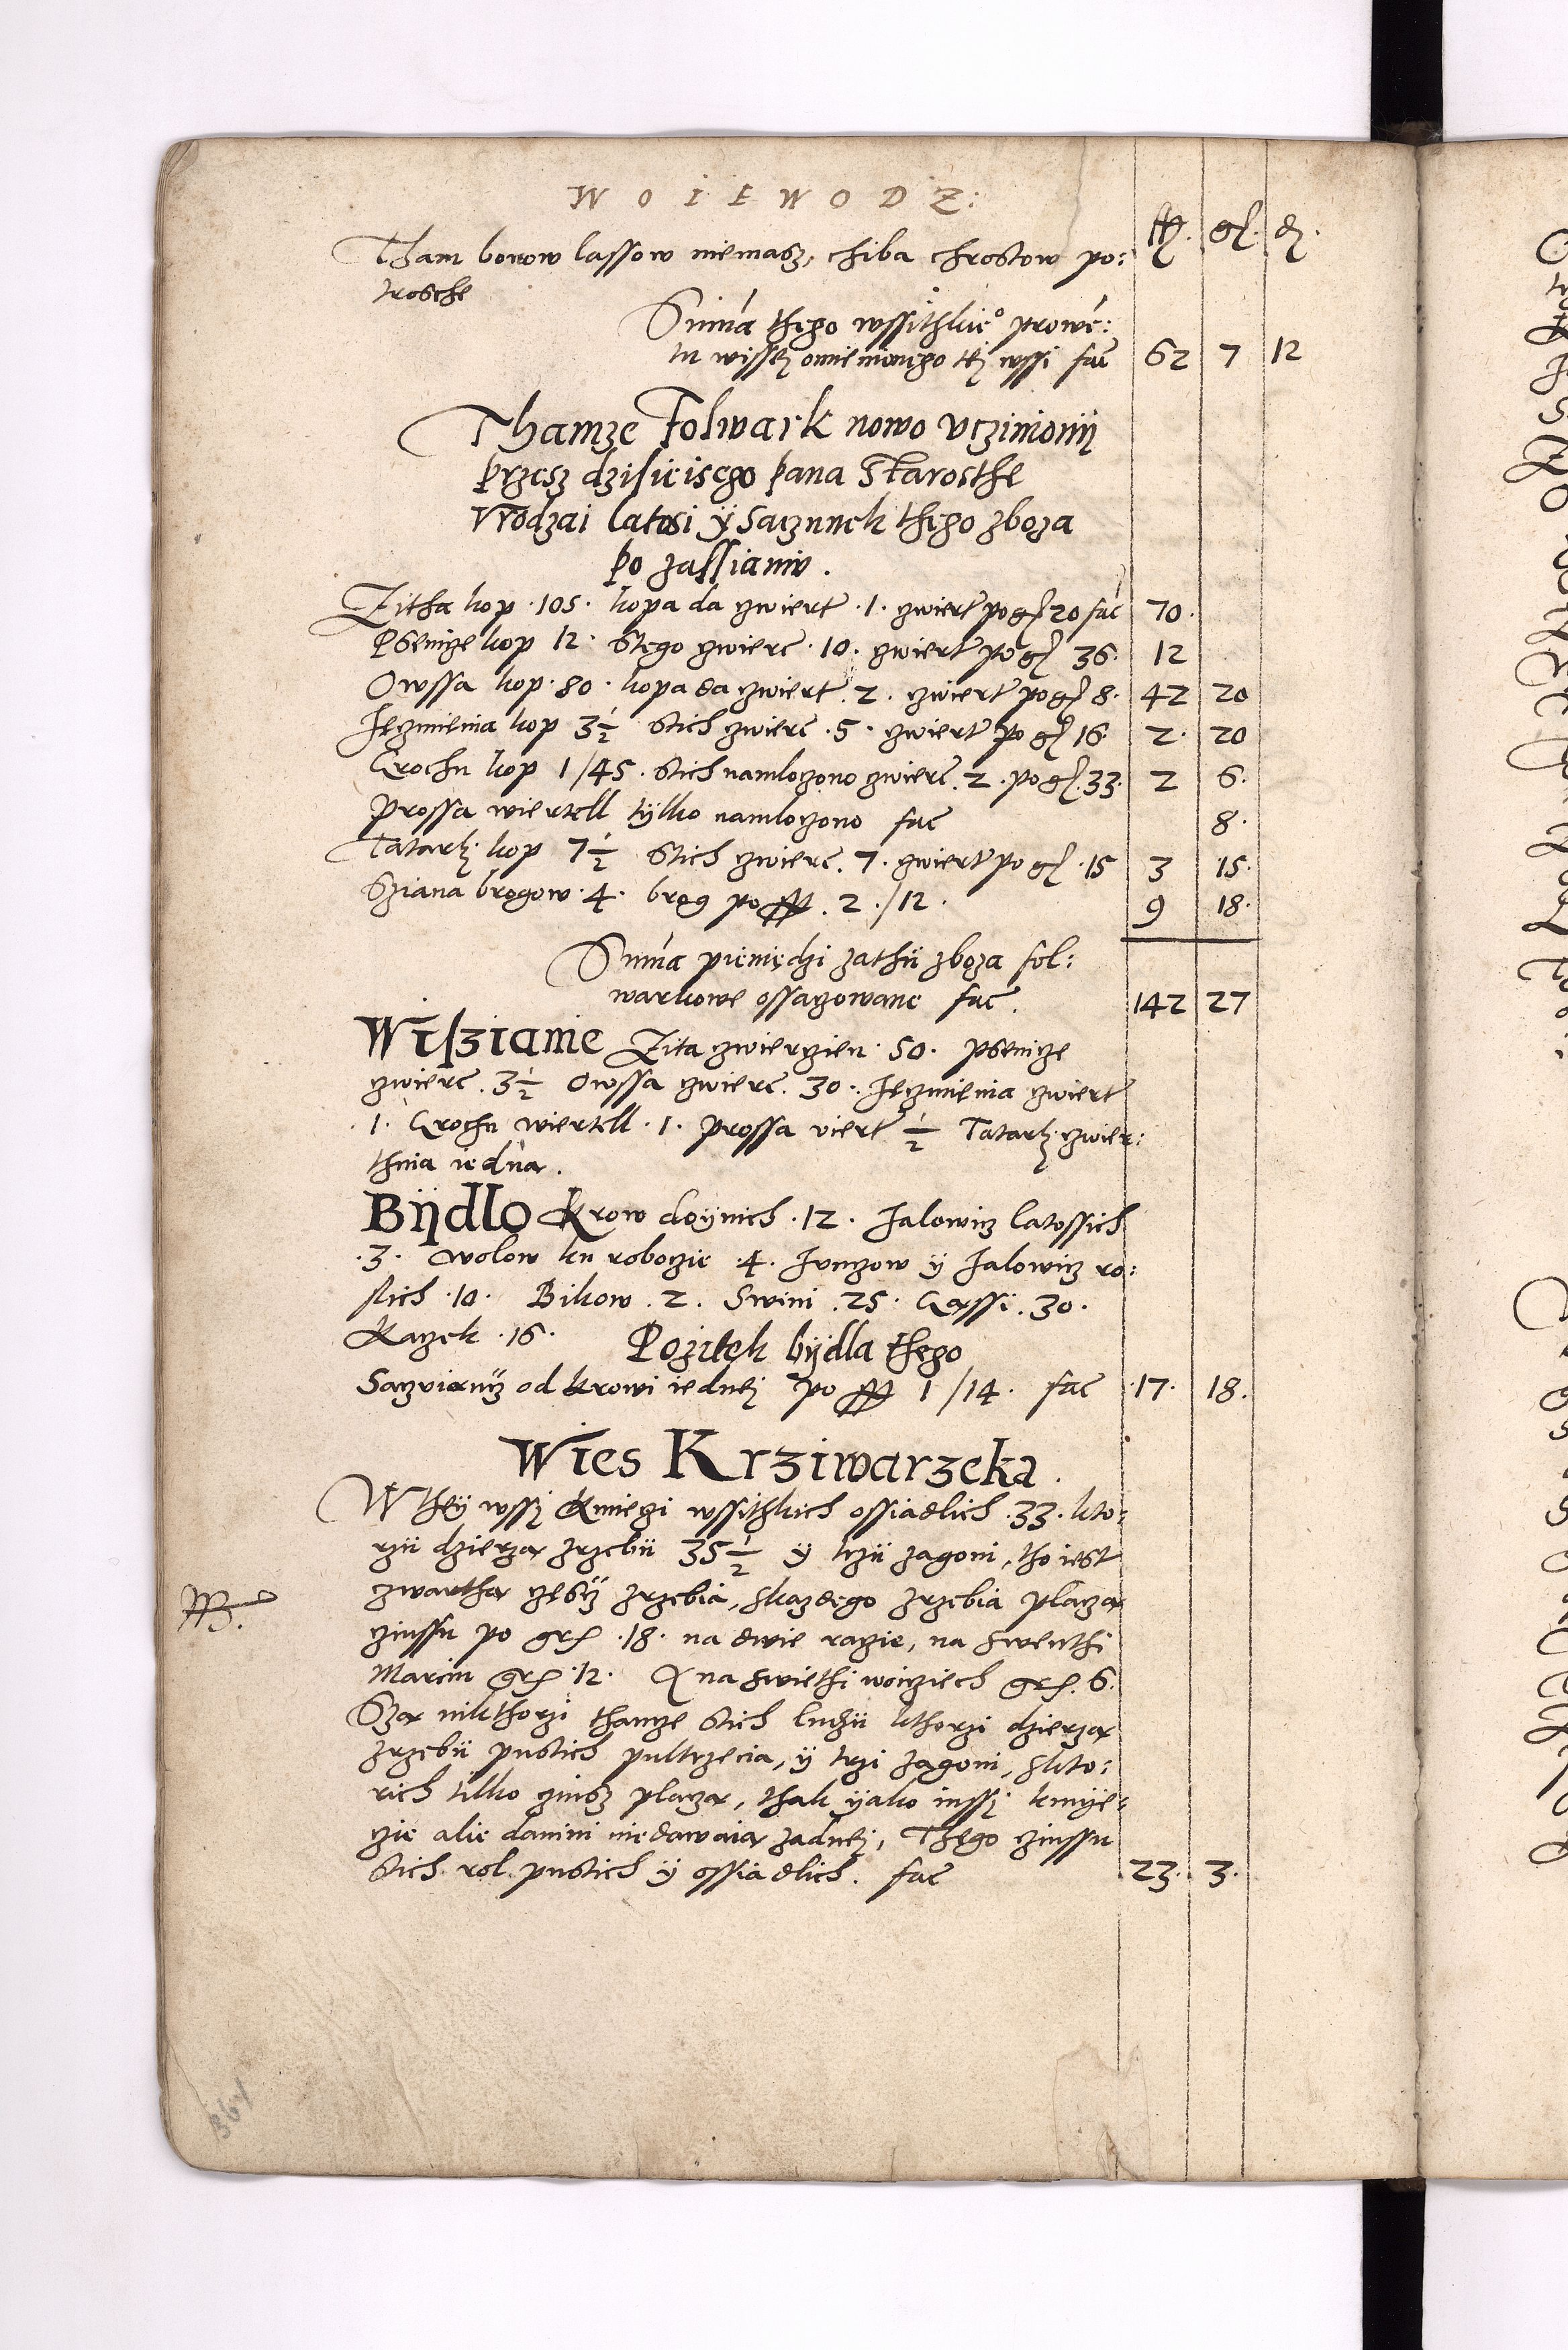 W O I E W O D Z:
fl. gl. d.
Tham borow lassow niemasz, chiba chrostow po:
trosche
Suma thego wssithkie° prowe:
tu wissej omienionego tej wssi fac 62 7 12
Thamze Folwark nowo vczinionÿ
przesz dzisieisego pana Starosthe
Vrodzai latosi ÿ Saczunek thego zboza
po zassianiu.
Zitha kop .105. kopa da czwiert .1. czwiert po gl 20 fac 70.
Psenicze kop 12. Stego czwiert .10. czwiert po gl 36. 12
Owssa kop .80. kopa da czwiert .2. czwiert po gl 8. 42 20
Jęczmienia kop 3½ Stich czwiert .5. czwiert po gl 16. 2. 20
Grochu kop 1/45. Stich namloczono czwiert .2. po gl .33. 2 6.
Prossa wiertell tÿlko namloczono fac 8.
Tatarkj kop 7½ Stich czwiert .7. czwiert po gl .15 3 15.
Sziana brogow .4. brog po fl .2./12. 9 18.
Suma pieniędzi zathÿ zboza fol:
warkowe ossaczowane fac. 142 27
Wiszianie Zita czwierczien .50. psenicze
czwiert .3½ Owssa czwiert .30. Jęczmienia czwiert
.1. Grochu wiertell .1. Prossa viert ½ Tatarkj czwier:
thnia iedna.
Bÿdlo Krow doÿnich .12. Jalowicz latossich
.3. Wolow ku roboczie .4. Junczow ÿ Jalowicz ro:
slich .10. Bikow .2. Swini .25. Gęssi .30.
Kaczek .16. Pozitek bÿdla thego
Saczviączÿ od krowi iednej po fl 1/14. fac .17. 18.
Wies Krziwarzeka.
W theÿ wssÿ Kmieczi wssithkich ossiadlich .33. kto:
rzÿ dzierzą zrzebÿ 35½ ÿ trzÿ zagoni, tho iest
czwarthą częsÿcz zrzebia, skazdego zrzebia placzą
czinssu po grs .18. na dwie raczie, na swenthi
Marcin grs .12. A na swiethi woicziech grs .6.
Szą niktorzi thamze Stich ludzÿ kthorzi dzierzą
zrzebÿ pustich pultrzecia, ÿ trzi zagoni, skto:
rich tilko czinsz placzą, thak ÿako inssÿ kmÿe:
czie alie danini nie dawaią zadnej, Thego czinssu
Stich rol pustich ÿ ossiadlich. fac 23. 3.
NB.